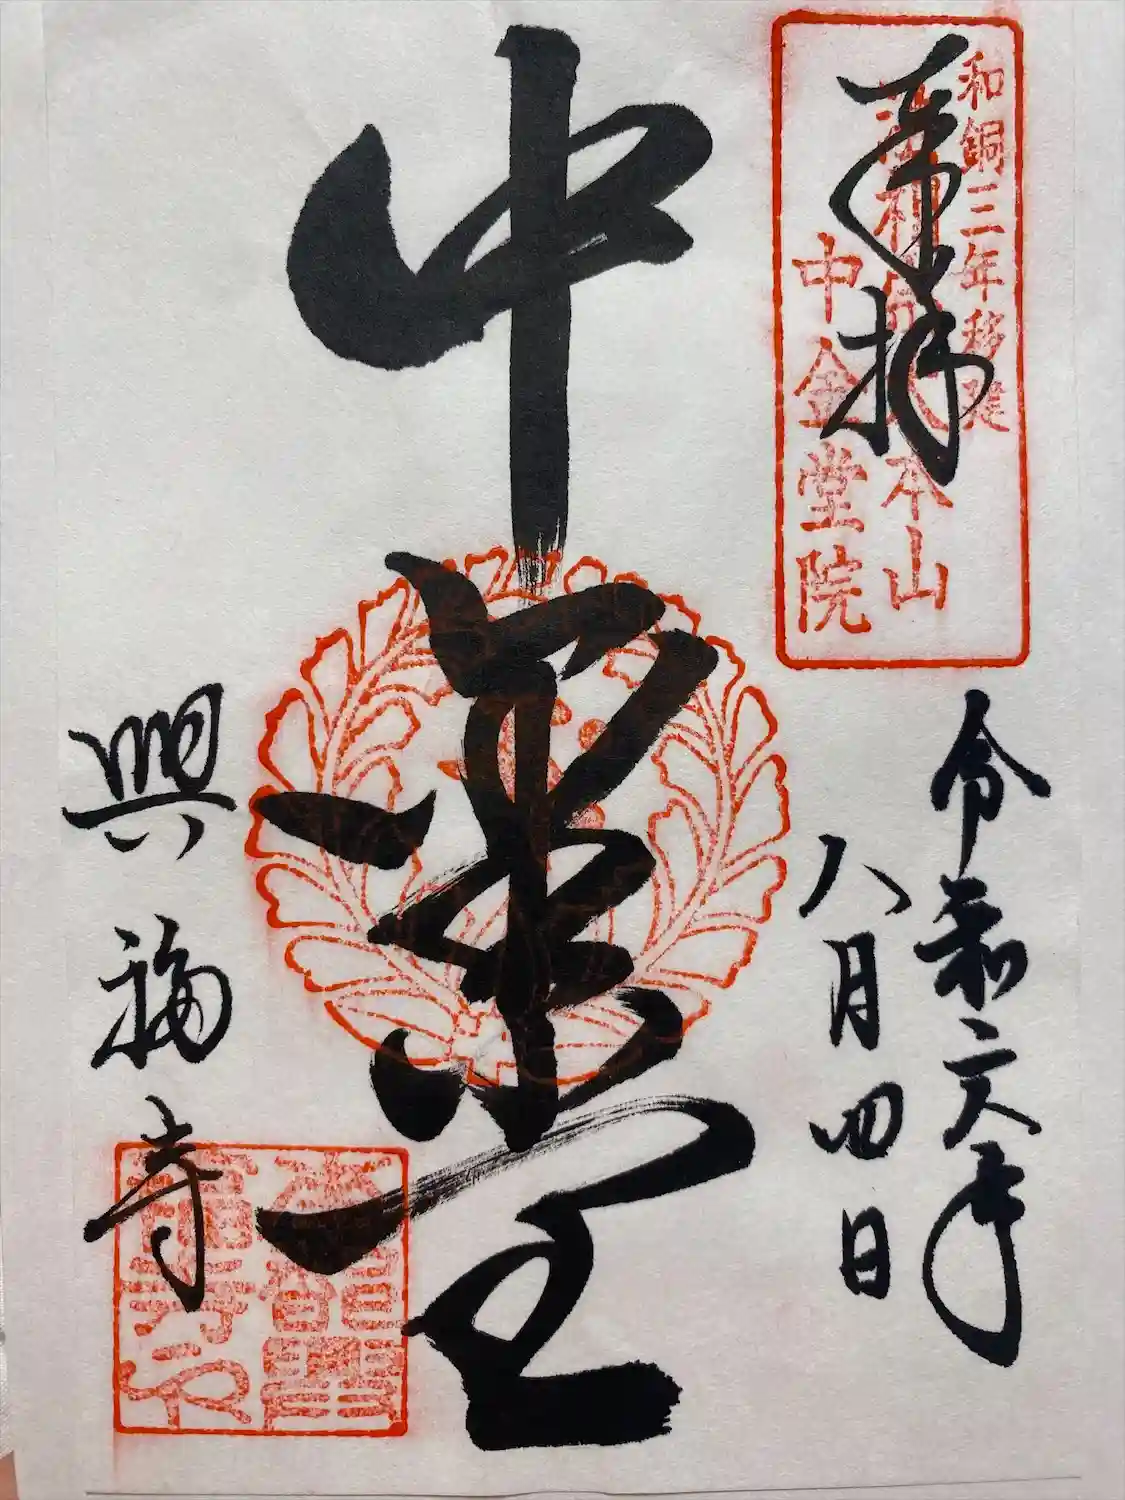 和銅三年移建
法相宗大本山
中金堂院
奉拝
令和六年
八月四日
中金堂
興福寺